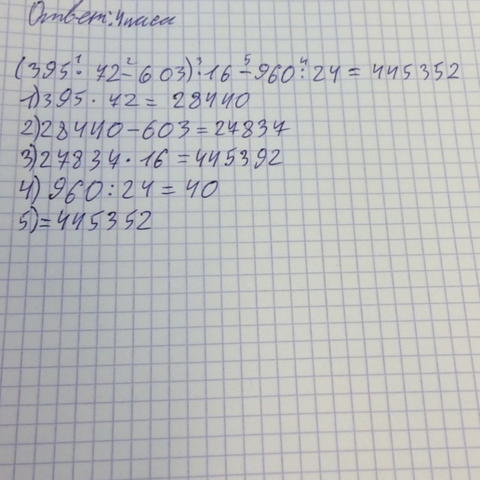 Ответ: 4 часа
(395 · 72 - 603) · 16 - 960 : 24 = 445352
1) 395 · 72 = 28440
2) 28440 - 603 = 27837
3) 27837 · 16 = 445392
4) 960 : 24 = 40
5) = 445352